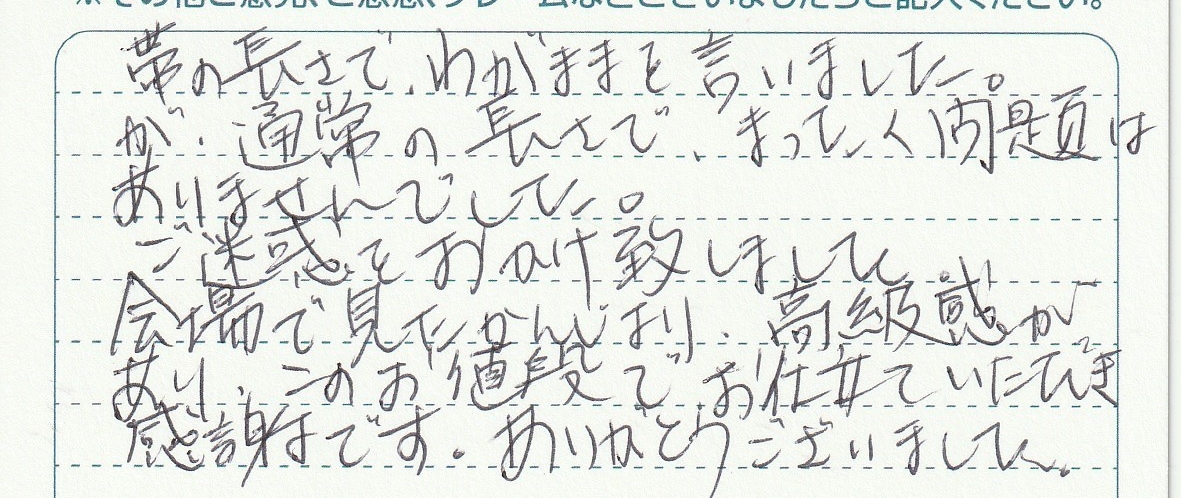 ※その他ご意見、ご感想、クレームなどございましたらご記入ください。
帯の長さで、わがままを言いました。
が、通常の長さで、まったく問題は
ありませんでした。
ご迷惑をおかけ致しました
会場で見たかんじより、高級感が
あり、このお値段で、お仕立ていただき
感謝です。ありがとうございました。